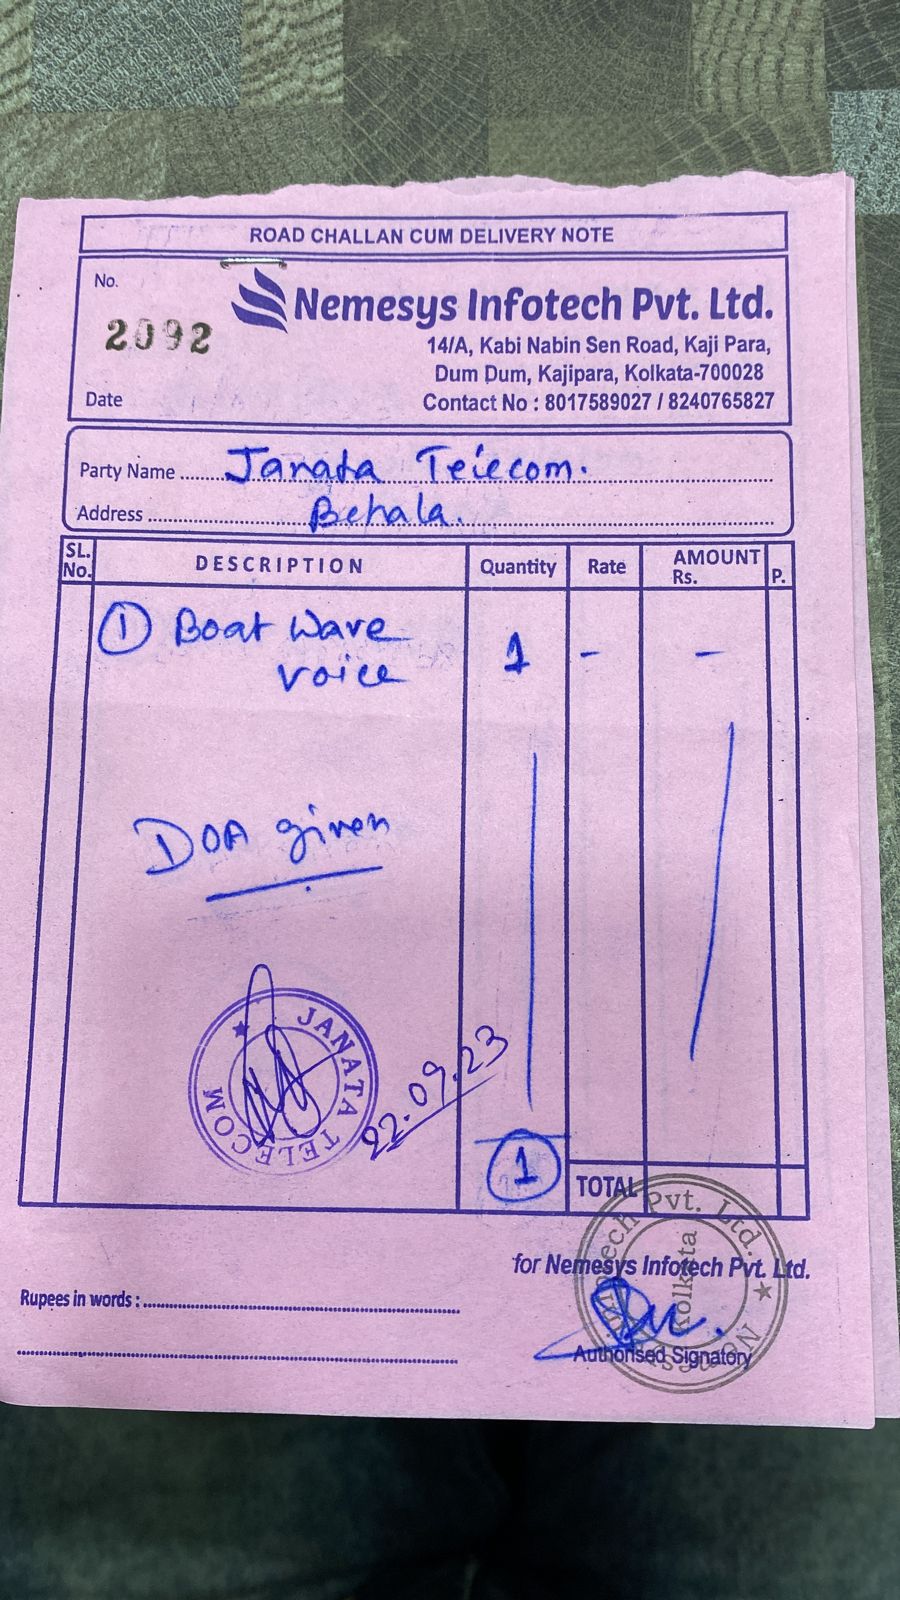 ROAD CHALLAN CUM DELIVERY NOTE
No.
2092
Nemesys Infotech Pvt. Ltd.
14/A, Kabi Nabin Sen Road, Kaji Para,
Dum Dum, Kajipara, Kolkata-700028
Date
Contact No : 8017589027 / 8240765827
Party Name Janata Telecom.
Address Behala.
SL. No. DESCRIPTION Quantity Rate AMOUNT Rs. P.
① Boat Wave 1 - -
voice
DOA given
JANATA TELECOM
22.09.23
1
TOTAL
for Nemesys Infotech Pvt. Ltd.
Rupees in words :
Kolkata
Authorised Signatory